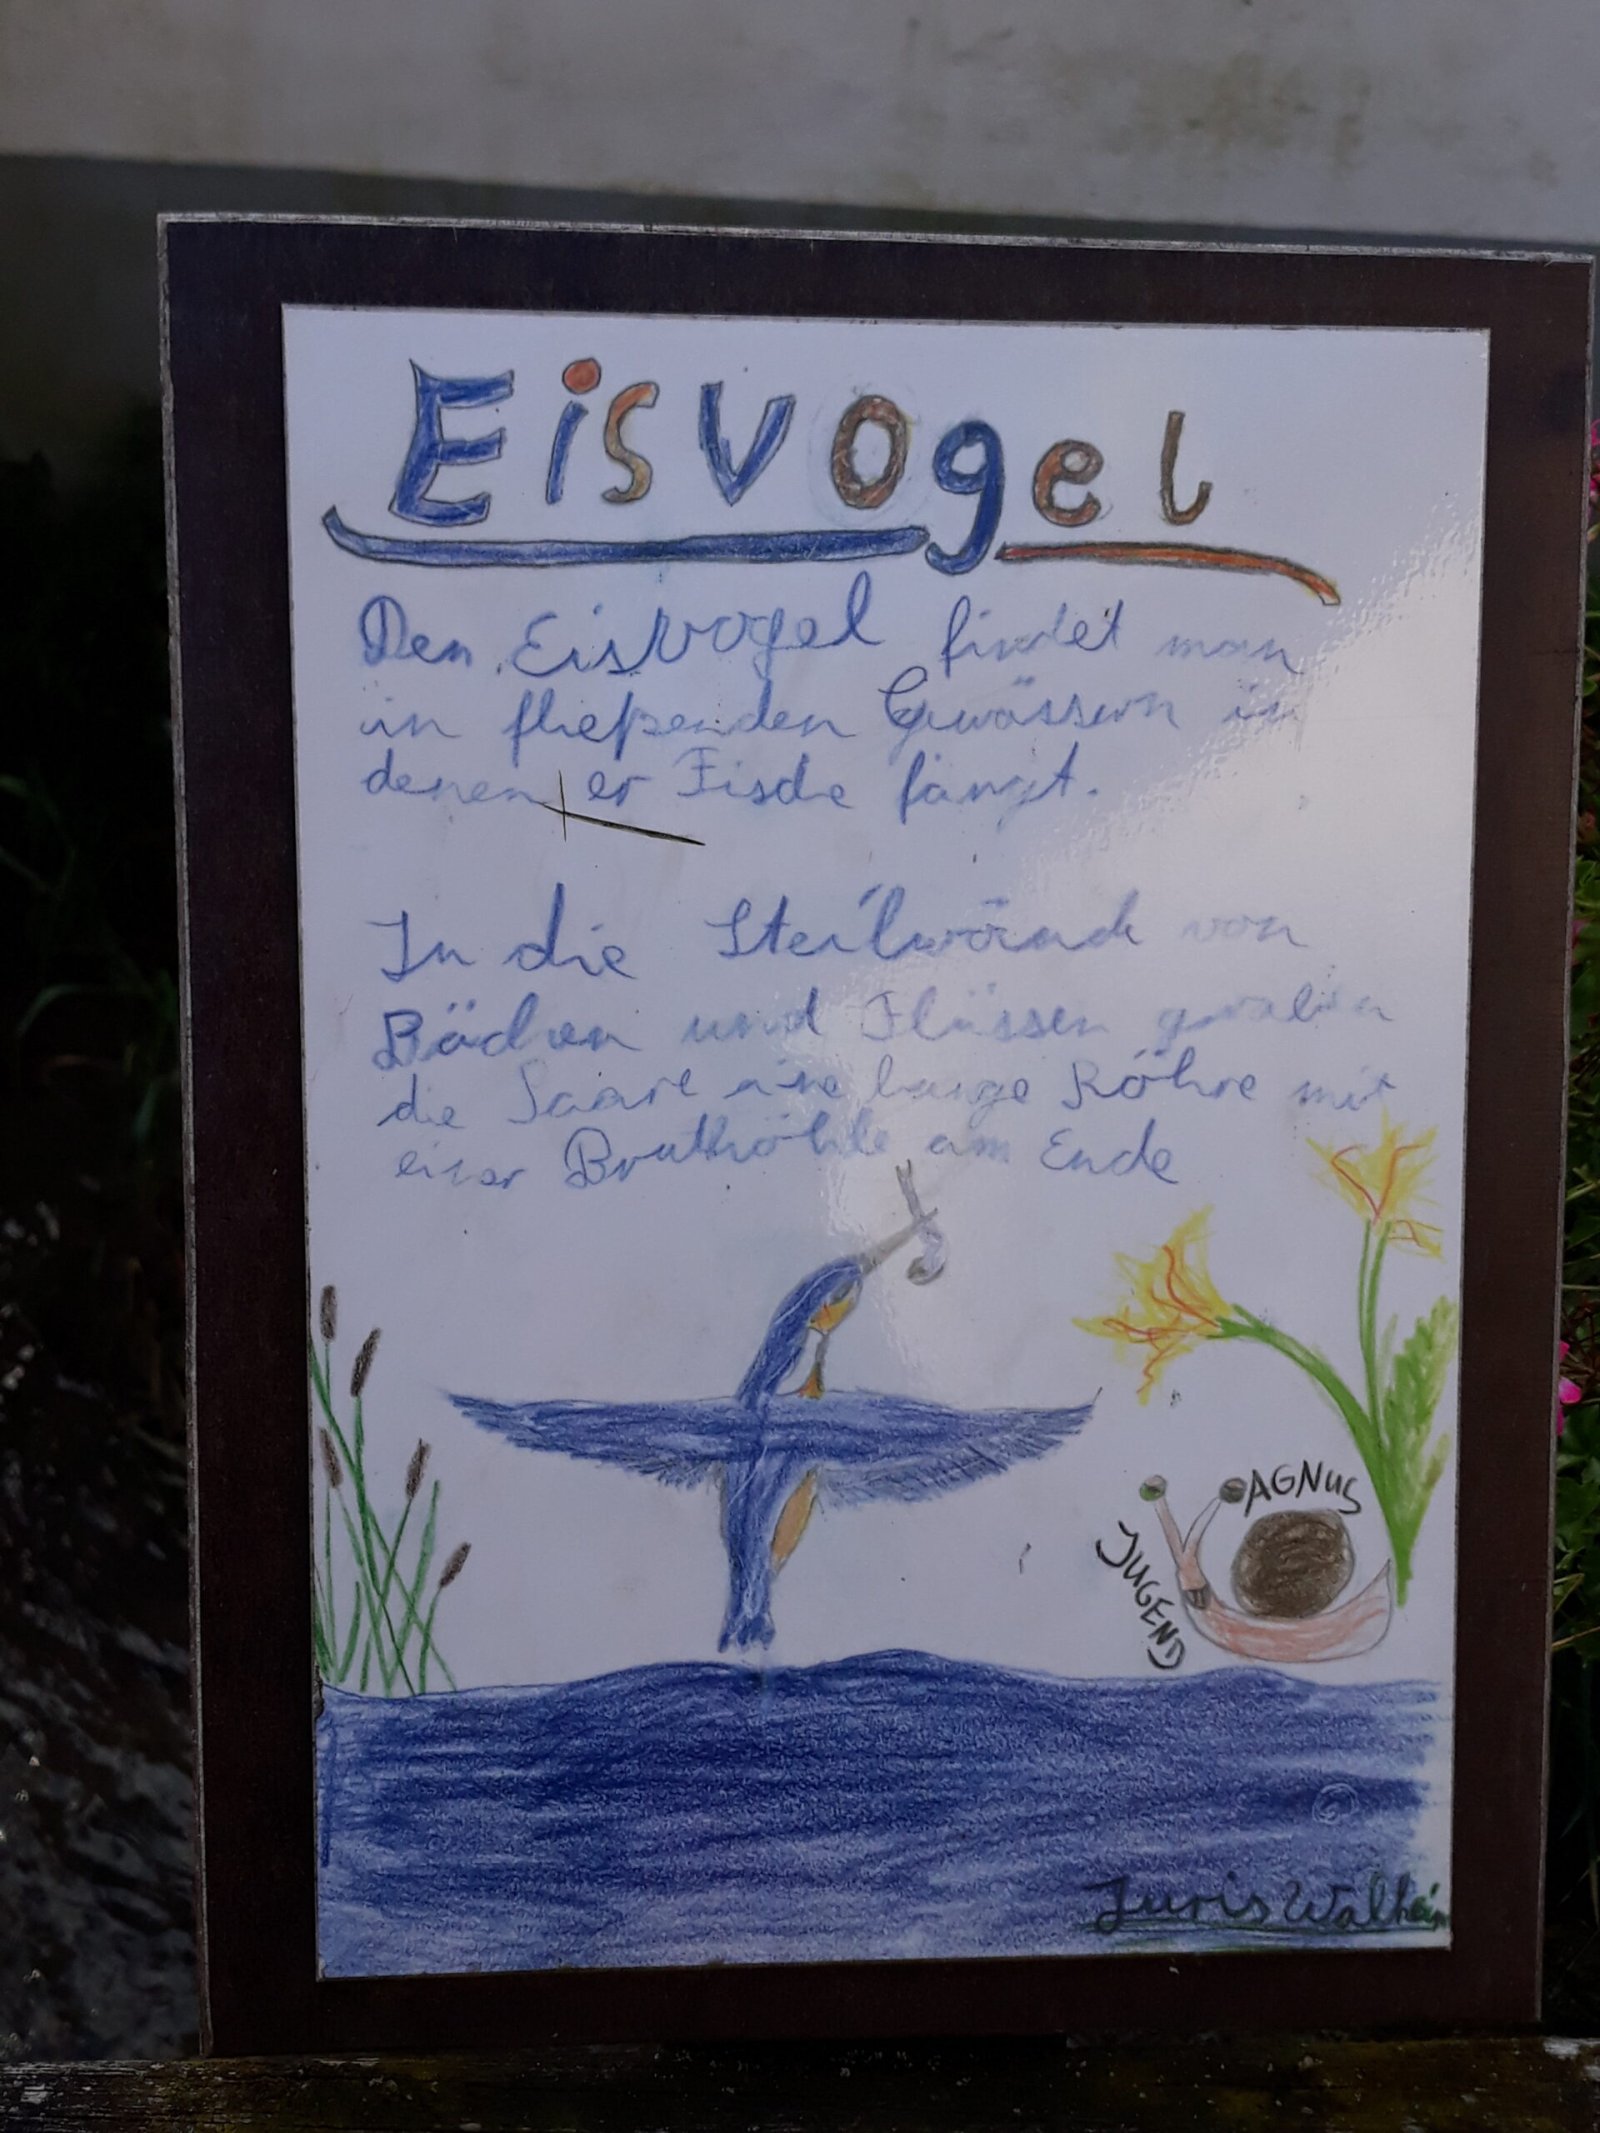 Eisvogel
Den Eisvogel findet man
in fließenden Gewässern in
denen er Fische fängt.
In die Steilwände von
Bächen und Flüssen graben
die Paare eine lange Röhre mit
einer Bruthöhle am Ende
AGNUS
JUGEND
Juris Walhein